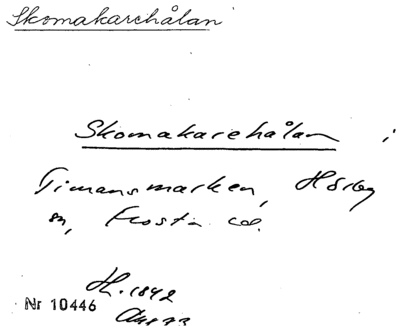 Skomakarehålan
Skomakarehålan i
Timansmarken, Hörby
sn, Frosta hd.
Nr 10446